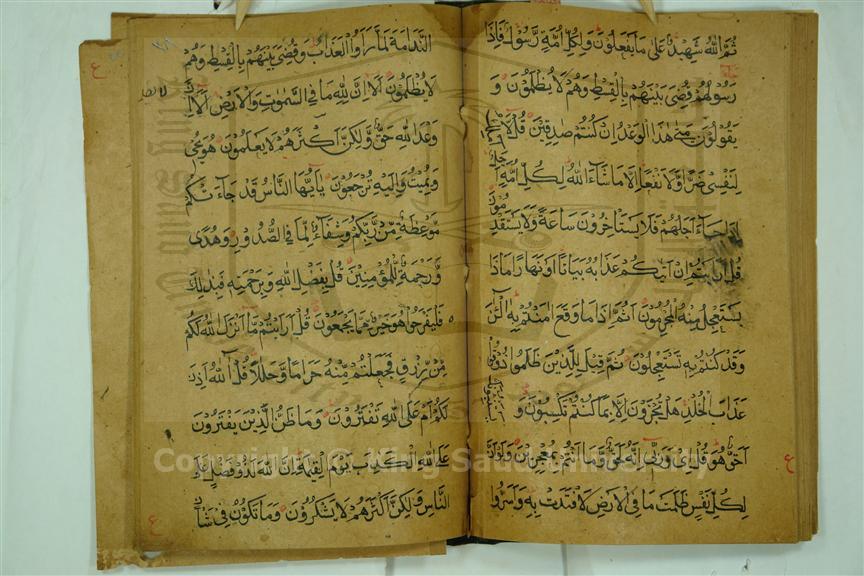 ثُمَّ اللهُ شَهِيدٌ عَلَى مَا يَفْعَلُونَ وَلِكُلِّ اُمَّةٍ رَّسُولٌ فَاِذَا
رَسُولُهُمْ قُضِيَ بَيْنَهُمْ بِالْقِسْطِ وَهُمْ لَا يُظْلَمُوْنَ وَ
يَقُوْلُوْنَ مَتٰى هٰذَا الْوَعْدُ اِنْ كُنْتُمْ صٰدِقِيْنَ قُلْ لَا
لِنَفْسِيْ ضَرًّا وَّلَا نَفْعًا اِلَّا مَا شَآءَ اللهُ لِكُلِّ اُمَّةٍ
اِذَا جَآءَ اَجَلُهُمْ فَلَا يَسْتَاْخِرُوْنَ سَاعَةً وَّلَا يَسْتَقْدِ
مُوْنَ
قُلْ اَرَاَيْتُمْ اِنْ اَتٰىكُمْ عَذَابُهُ بَيَاتًا اَوْ نَهَارًا مَاذَا
يَسْتَعْجِلُ مِنْهُ الْمُجْرِمُوْنَ اَثُمَّ اِذَا مَا وَقَعَ اٰمَنْتُمْ بِهٖ آلْـٰٔنَ
وَقَدْ كُنْتُمْ بِهٖ تَسْتَعْجِلُوْنَ ثُمَّ قِيْلَ لِلَّذِيْنَ ظَلَمُوْا ذُوْقُوْا
عَذَابَ الْخُلْدِ هَلْ تُجْزَوْنَ اِلَّا بِمَا كُنْتُمْ تَكْسِبُوْنَ وَ
اَحَقٌّ هُوَ قُلْ اِيْ وَرَبِّيْ اِنَّهُ لَحَقٌّ وَّمَا اَنْتُمْ بِمُعْجِزِيْنَ وَلَوْ اَنَّ
لِكُلِّ نَفْسٍ ظَلَمَتْ مَا فِي الْاَرْضِ لَافْتَدَتْ بِهٖ وَاَسَرُّوا
النَّدَامَةَ لَمَّا رَاَوُا الْعَذَابَ وَقُضِيَ بَيْنَهُمْ بِالْقِسْطِ وَهُمْ
لَا يُظْلَمُوْنَ اَلَا اِنَّ لِلّٰهِ مَا فِي السَّمٰوٰتِ وَالْاَرْضِ اَلَا اِنَّ
وَعْدَ اللهِ حَقٌّ وَّلٰكِنَّ اَكْثَرَهُمْ لَا يَعْلَمُوْنَ هُوَ يُحْيٖ
وَيُمِيْتُ وَاِلَيْهِ تُرْجَعُوْنَ يٰٓاَيُّهَا النَّاسُ قَدْ جَآءَتْكُمْ
مَّوْعِظَةٌ مِّنْ رَّبِّكُمْ وَشِفَآءٌ لِّمَا فِي الصُّدُوْرِ وَهُدًى
وَّرَحْمَةٌ لِّلْمُؤْمِنِيْنَ قُلْ بِفَضْلِ اللهِ وَبِرَحْمَتِهٖ فَبِذٰلِكَ
فَلْيَفْرَحُوْا هُوَ خَيْرٌ مِّمَّا يَجْمَعُوْنَ قُلْ اَرَاَيْتُمْ مَّا اَنْزَلَ اللهُ لَكُمْ
مِّنْ رِّزْقٍ فَجَعَلْتُمْ مِّنْهُ حَرَامًا وَّحَلٰلًا قُلْ آللهُ اَذِنَ
لَكُمْ اَمْ عَلَى اللهِ تَفْتَرُوْنَ وَمَا ظَنُّ الَّذِيْنَ يَفْتَرُوْنَ
عَلَى اللهِ الْكَذِبَ يَوْمَ الْقِيٰمَةِ اِنَّ اللهَ لَذُوْ فَضْلٍ عَلَى
النَّاسِ وَلٰكِنَّ اَكْثَرَهُمْ لَا يَشْكُرُوْنَ وَمَا تَكُوْنُ فِيْ شَاْنٍ
Copyright © King Saud University